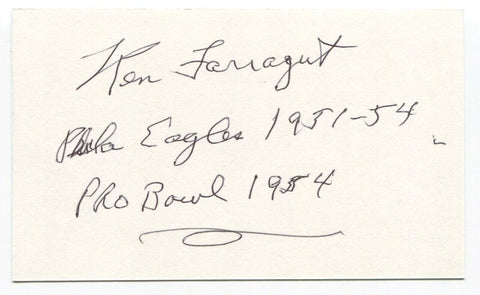 Ken Farragut
Phila Eagles 1951-54
PRO Bowl 1954